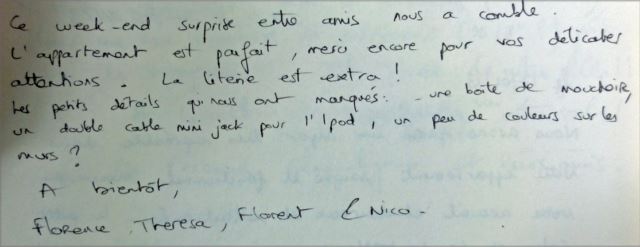 Ce week-end surprise entre amis nous a comblé.
L'appartement est parfait, merci encore pour vos délicates
attentions. La literie est extra !
Les petits détails qui nous ont manqués : - une boîte de mouchoir,
un double cable mini jack pour l'Ipod, un peu de couleurs sur les
murs ?
A bientôt,
Florence, Theresa, Florent & Nico-